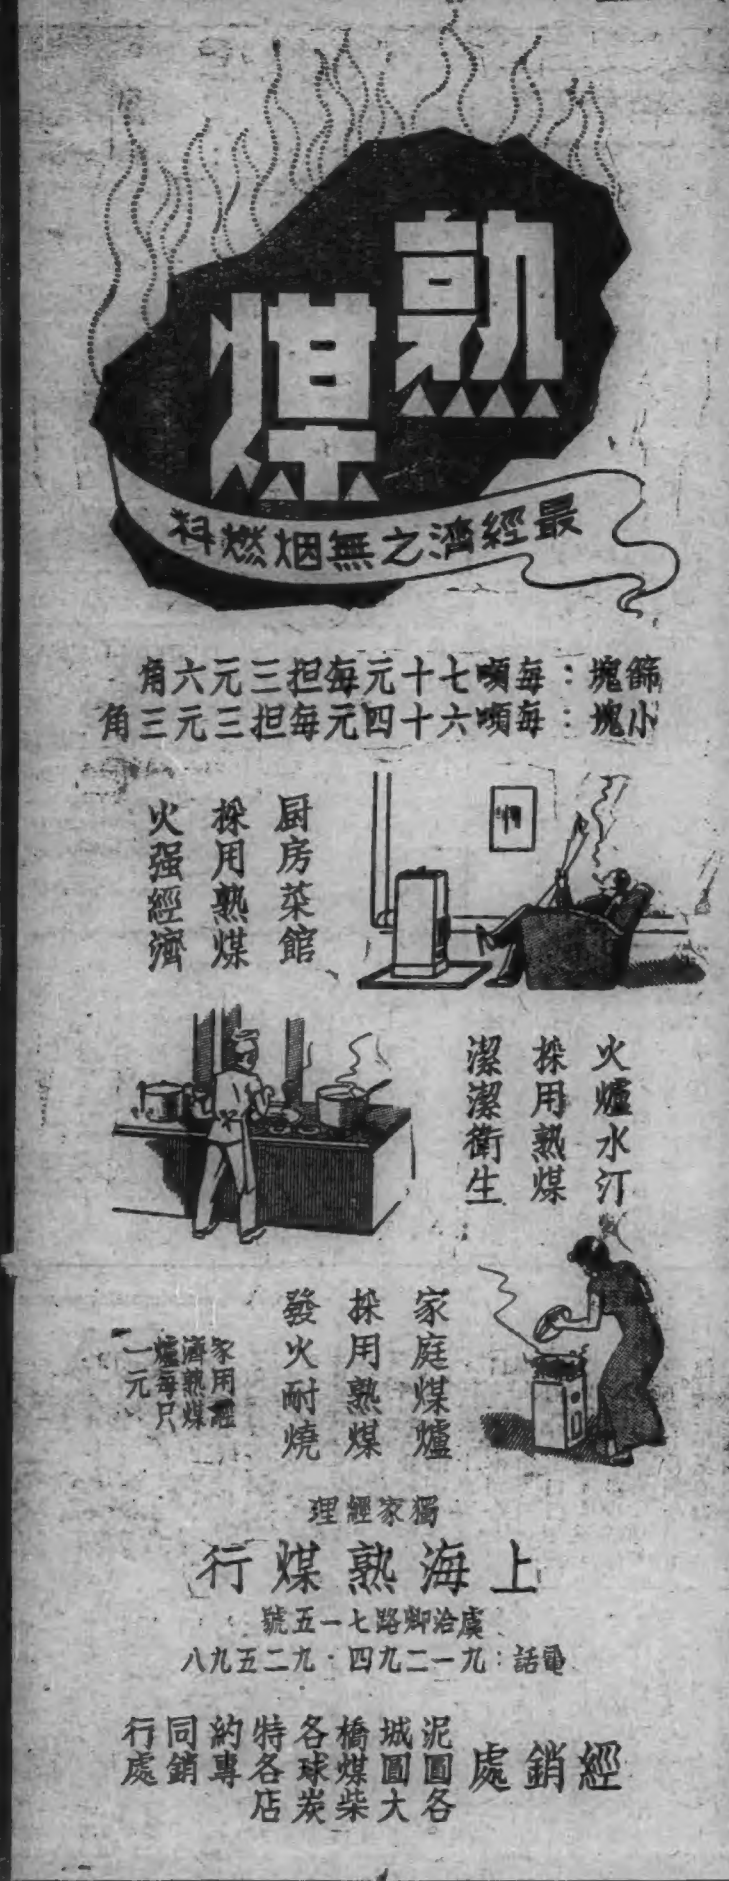 熟煤
最經濟之無烟燃料
篩塊：每噸七十元每担三元六角
小塊：每噸六十四元每担三元三角
厨房菜館
採用熟煤
火强經濟
火爐水汀
採用熟煤
潔潔衛生
家庭煤爐
採用熟煤
發火耐燒
家用經
濟熟煤
爐每只
一元
獨家經理
上海熟煤行
虞洽卿路七一五號
電話：九一二九四·九二五九八
經銷處
泥城橋各特約同行
圓圓煤球各專銷處
各大柴炭店